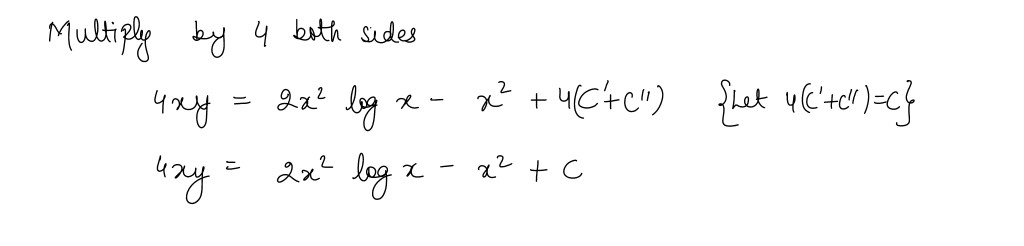 Multiply by 4 both sides
4xy = 2x² log x - x² + 4(C'+C'') {Let 4(C'+C'')=C}
4xy = 2x² log x - x² + C